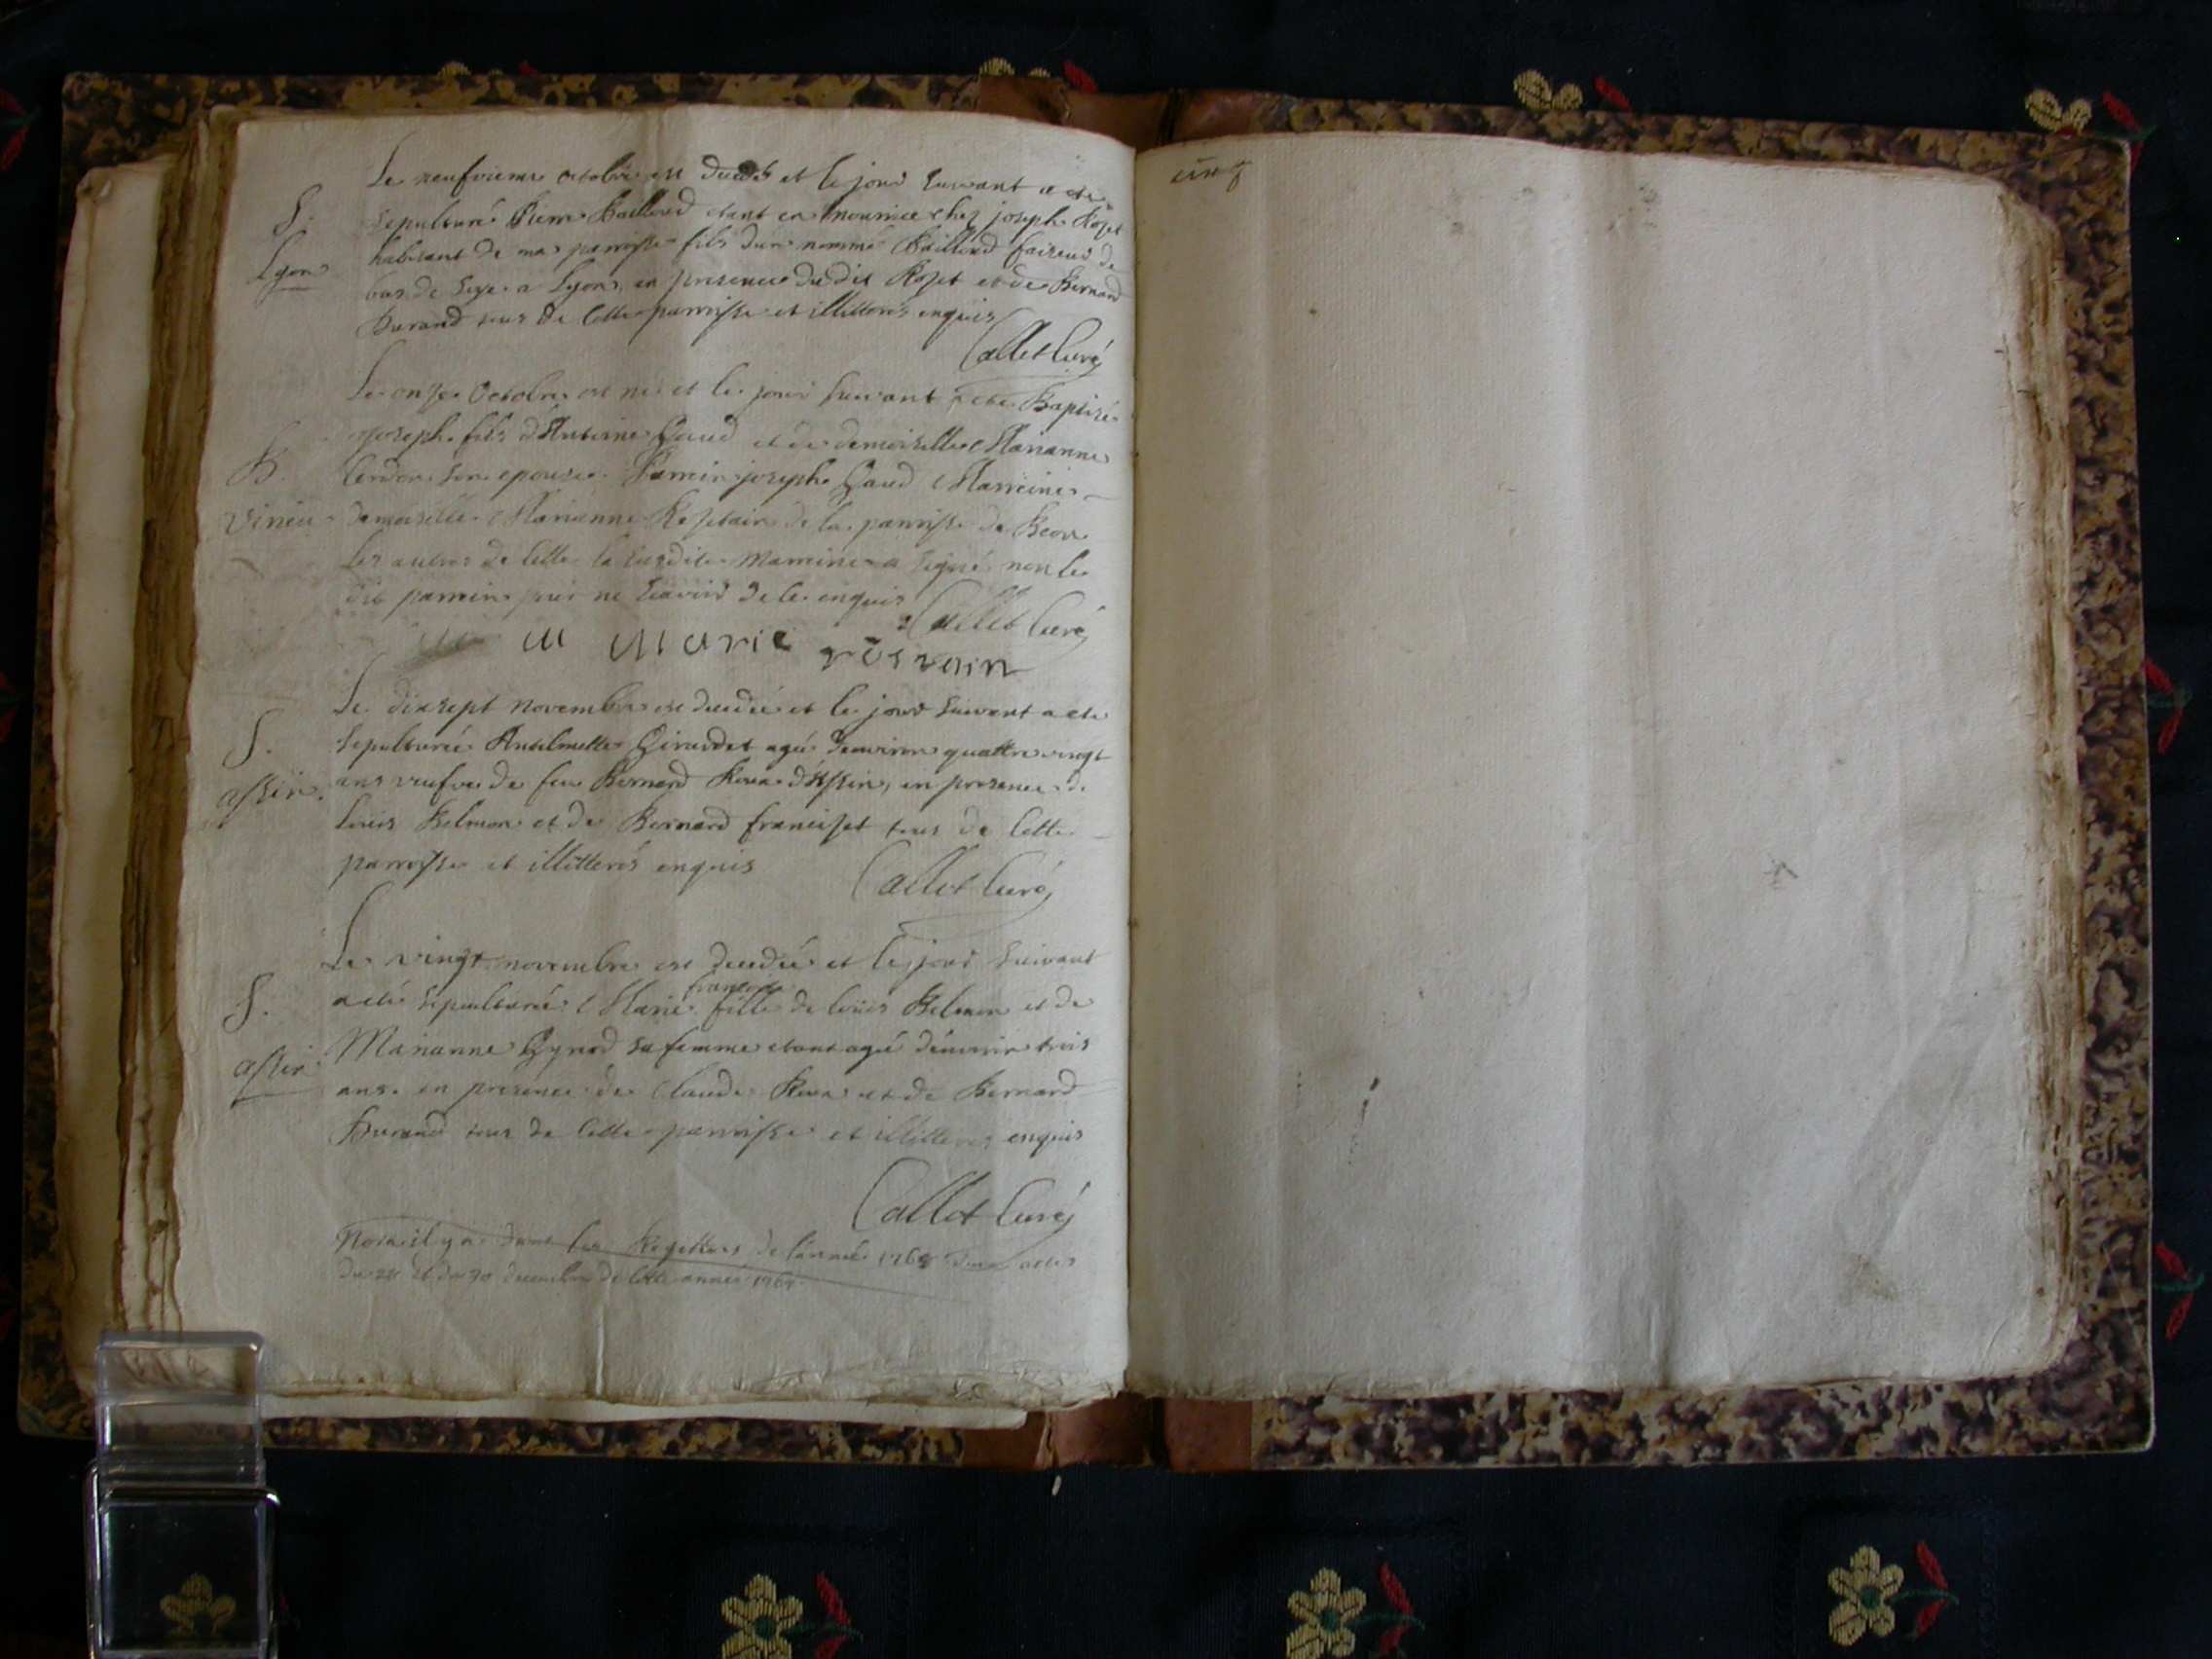 Le neufvieme octobre est decedé et le jour suivant a eté
S. sepulturé Pierre Baillord etant en nourrice chez joseph Rozet
Lyon habitant de ma parroisse fils d'un nommé Baillord faiseur de
bas de soye a Lyon, en presence du dit Rozet et de Bernard
Durand tous de cette parroisse et illitterés enquis
Callet Curé
Le onze Octobre est né et le jour suivant a eté Baptisé
joseph fils d'Antoine Gaud et de demoiselle Marianne
B. son epouse. Parrein joseph Gaud Marreine
Vineu demoiselle Marianne de la parroisse de Beon
les autres de cette la susdite Marreine a signé non le
dit parrein pour ne sçavoir de ce enquis
Callet Curé
m marie
Le dixsept novembre est decedée et le jour suivant a eté
S. sepulturée Antelmette Girardet agée d'environ quattre vingt
assin. ans veufve de feu Bernard Roux d'Assin, en presence de
louis Belmon et de Bernard francizet tous de cette
parroisse et illitterés enquis
Callet Curé
Le vingt novembre est decedée et le jour suivant
françoise
S. a eté sepulturée Marie fille de louis Belmon et de
Marianne Gynod sa femme etant agée d'environ trois
assin ans. en presence de Claude Roux et de Bernard
Durand tous de cette parroisse et illitterés enquis
Callet Curé
Nota il y a dans les Registres de l'année 176 deux actes
du et du 30 decembre de cette année